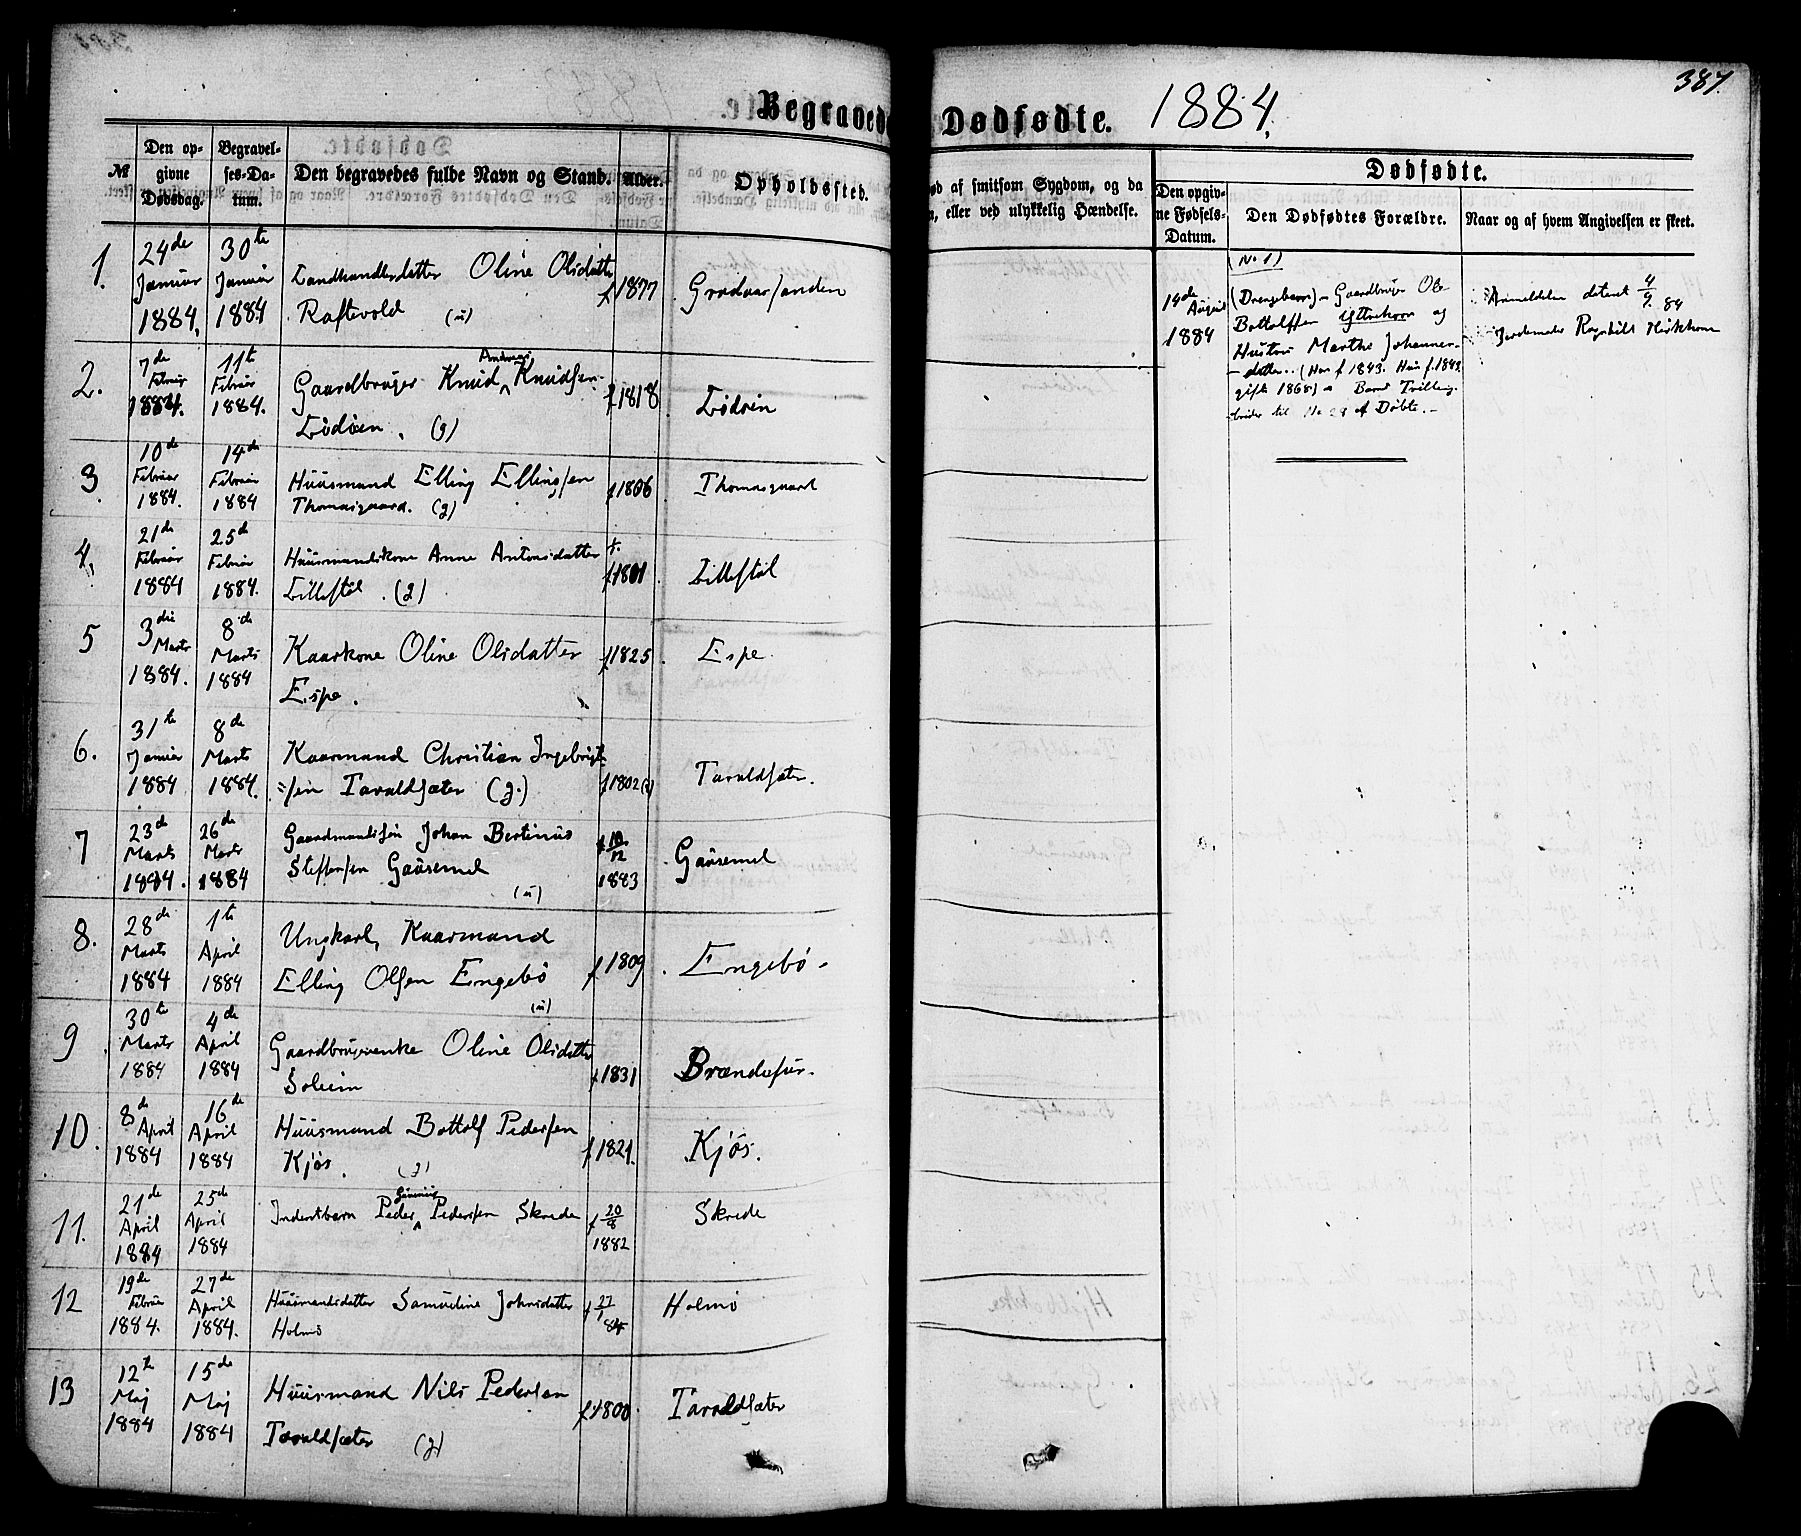 387.
Begravede Dødfødte. 1884.
№
Den opgivne Dødsdag.
Begravelses-Datum.
Den begravedes fulde Navn og Stand.
Alder.
Opholdssted.
Død af smitsom Sygdom, og da
eller ved ulykkelig Hændelse.
Dødfødte.
Den opgivne Fødsels-Datum.
Den Dødfødtes Forældre.
Naar og af hvem Angivelsen er skeet.
1. 24de Januar 1884, 30te Januar 1884 Landhandlerdatter Oline Olsdatter f 1877 Gradvarsanden
Raftevold (u)
2. 7de Februar 1884. 11te Februar 1884. Gaardbruger Knud Andreas Knudsen f 1818 Lødøen
Lødøen. (g)
3. 10de Februar 1884. 14de Februar 1884 Huusmand Elling Ellingsen f 1806 Thomasgaard
Thomasgaard. (g)
4, 21de Februar 1884 25de Februar 1884. Huusmandskone Anne Antonsdatter f 1801 Lillestøl
Lillestøl. (g)
5 3die Marts 1884. 8de Marts 1884 Kaarkone Oline Olsdatter f 1825 Espe.
Espe.
6. 31te Januar 1884 8de Marts 1884. Kaarmand Christian Ingebrigt-
sen Taraldsæter (g.) f 1802 Taraldsæter.
7 23de Marts 1884. 26de Marts 1884 Gaardmandssøn Johan Bertinus f 10/12 1883 Gausemel
Steffensen Gausemel (u)
8. 28de Marts 1884 1te April 1884 Ungkarl, Kaarmand
Elling Olsen Engebø (u) f 1809 Engebø.
9 30te Marts 1884 4de April 1884 Gaardbrugerenke Oline Olsdatter f 1831 Brændefur.
Soleim
10. 8de April 1884 16de April 1884 Huusmand Bottolf Pedersen f 1821. Kjøs.
Kjøs. (g)
11. 21de April 1884 25de April 1884 Inderstbarn Peder Pedersen Skrede f 20/8 1882 Skrede
12 19de Februar 1884. 27de April 1884. Huusmandsdatter Samueline Johnsdatter f 27/1 84 Holmø
Holmø
13 12te Maj 1884 15de Maj 1884 Huusmand Nils Pedersen f 1800 Taraldsæter
Taraldsæter (g)
(No 1)
14de August 1884
(Drengebarn) - Gaardbruger Ole
Bottolfsen Yttrehorn og
Hustru Marthe Johannes-
datter. (Han f 1843. Hun f. 1842
gift 1868) Barnet Tvilling-
broder til No 29 af Døbte. -
Anmeldelse dateret 4/9. 84
Jordemoder Ragnhild Kirkhorn